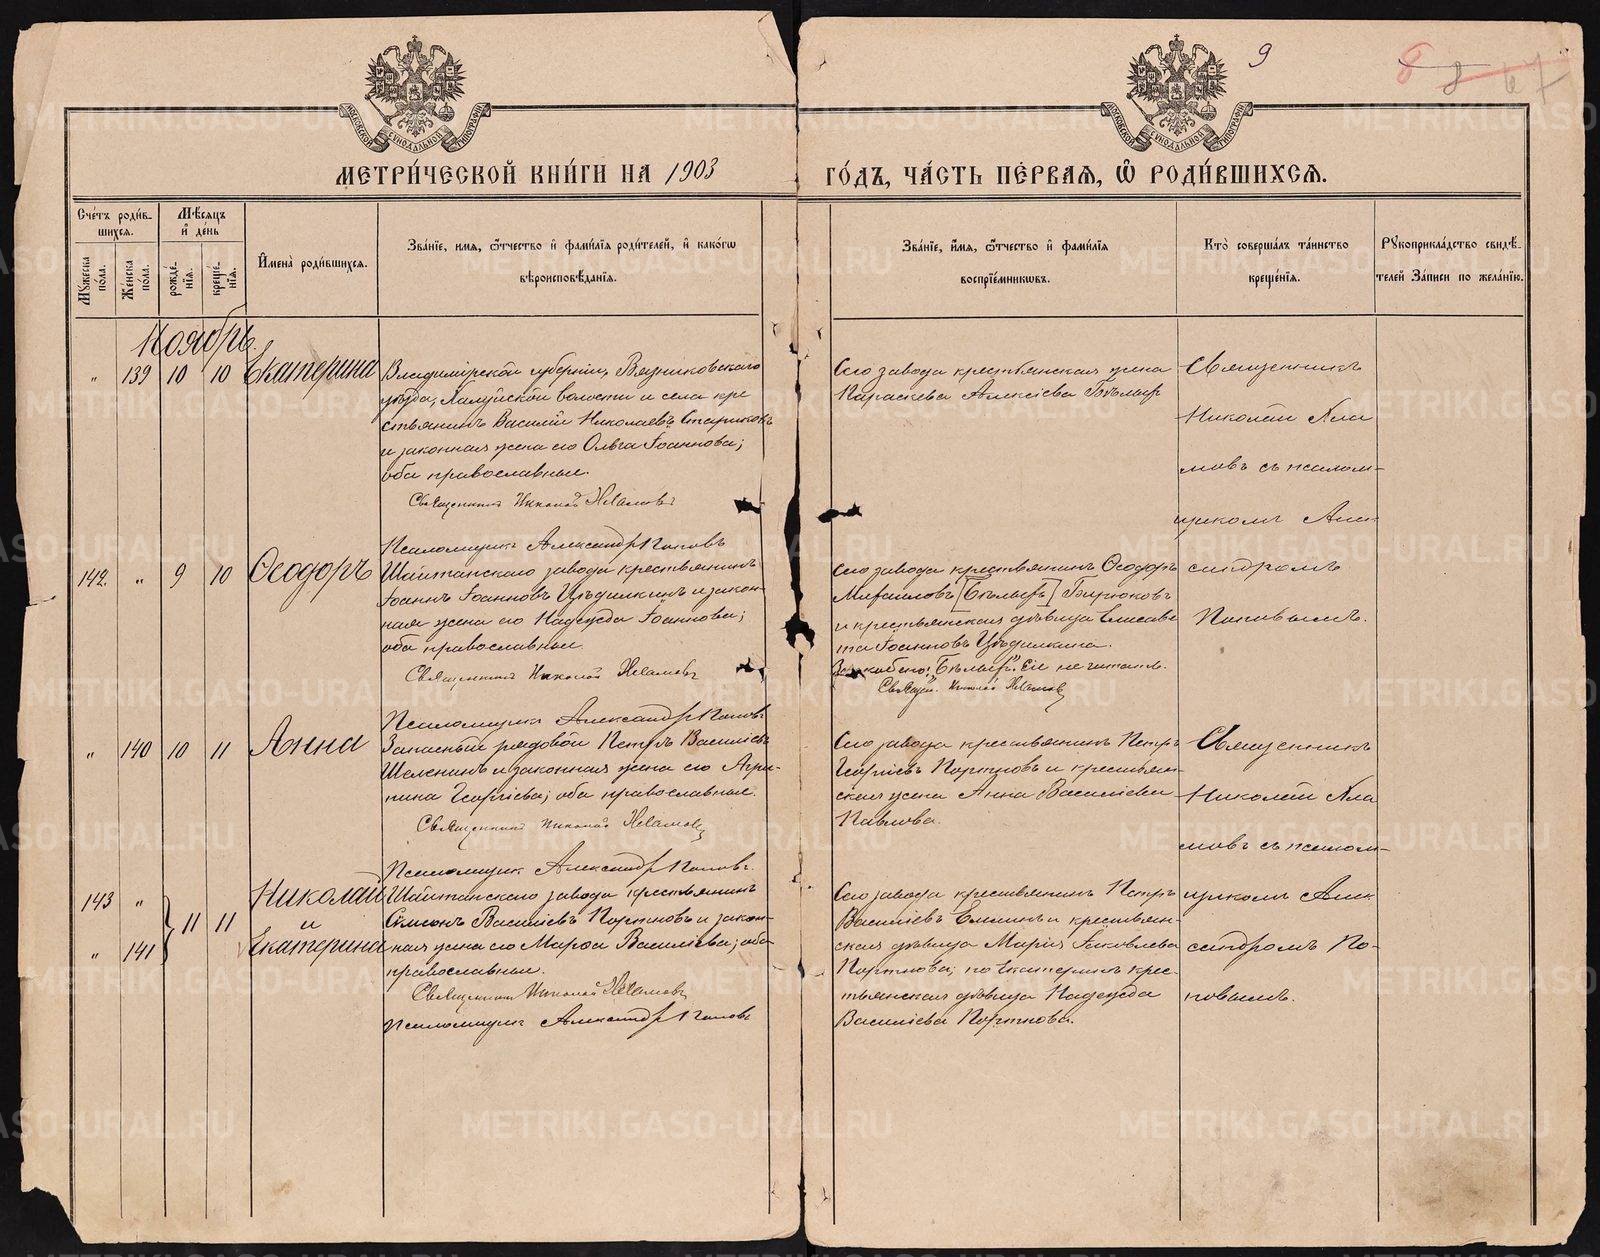 9
8 8 67
МОСКОВСКОЙ СѴНОДАЛЬНОЙ ТИПОГРАФІИ
МОСКОВСКОЙ СѴНОДАЛЬНОЙ ТИПОГРАФІИ
МЕТРИ́ЧЕСКОЙ КНИ́ГИ НА 1903 ГО́ДЪ, ЧА́СТЬ ПЕ́РВАѦ, Ѽ РОДИ́ВШИХСѦ.
Сче́тъ роди́в-
шихсѧ.
Мꙋ́жеска по́ла.
Же́нска по́ла.
Мѣ́сѧцъ
и҆ де́нь
рожде́-
нїѧ.
креще́-
нїѧ.
И҆мена̀ роди́вшихсѧ.
Зва́нїе, и́мѧ, ѻ҆́тчество и҆ фами́лїѧ роди́телей, и҆ како́гѡ
вѣроисповѣ́данїѧ.
Зва́нїе, и҆́мѧ, ѻ҆́тчество и҆ фами́лїѧ
воспрїе́мникѡвъ.
Кто̀ соверша́лъ та́инство
креще́нїѧ.
Рꙋкоприкла́дство свидѣ́-
телей За́писи по жела́нїю.
Ноябрь.
" 139 10 10 Екатерина
Владимірской губерніи, Вязниковскаго
уѣзда, Холуйской волости и села кре
стьянинъ Василій Николаевъ Стариковъ
и законная жена его Ольга Іоаннова;
оба православные.
Священникъ Николай Хламовъ
Псаломщикъ Александръ Поповъ
Сего завода крестьянская жена
Параскева Алексіева Бѣлыхъ
Священникъ
Николай Хла
мовъ съ псалом-
щикомъ Алек
сандромъ
Поповымъ.
142. " 9 10 Ѳеодоръ
Шайтанскаго завода крестьянинъ
Іоаннъ Іоанновъ Цѣдилкинъ и закон-
ная жена его Надежда Іоаннова;
оба православные
Священникъ Николай Хламовъ
Псаломщикъ Александръ Поповъ
Сего завода крестьянинъ Ѳеодоръ
Михаиловъ [Бѣлыхъ] Бирюковъ
и крестьянская дѣвица Елисаве
та Іоаннова Цѣдилкина.
Зачеркнуто: "Бѣлыхъ". Ее не читать.
Свящ. Николай Хламовъ
" 140 10 11 Анна
Запасный рядовой Петръ Василіевъ
Шеленинъ и законная жена его Агри-
пина Георгіева; оба православные.
Священникъ Николай Хламовъ
Псаломщикъ Александръ Поповъ.
Сего завода крестьянинъ Петръ
Георгіевъ Портновъ и крестьян-
ская жена Анна Василіева
Павлова.
Священникъ
Николай Хла
мовъ съ псалом-
щикомъ Алек
сандромъ По-
повымъ.
143 " 11 11 Николай
и
" 141 Екатерина
Шайтанскаго завода крестьянинъ
Симеонъ Василіевъ Портновъ и закон-
ная жена его Марѳа Василіева; оба
православные.
Священникъ Николай Хламовъ
Псаломщикъ Александръ Поповъ
Сего завода крестьянинъ Петръ
Василіевъ Елшинъ и крестьян-
ская дѣвица Марія Іаковлева
Портнова; по Екатеринѣ крес-
тьянская дѣвица Надежда
Василіева Портнова.